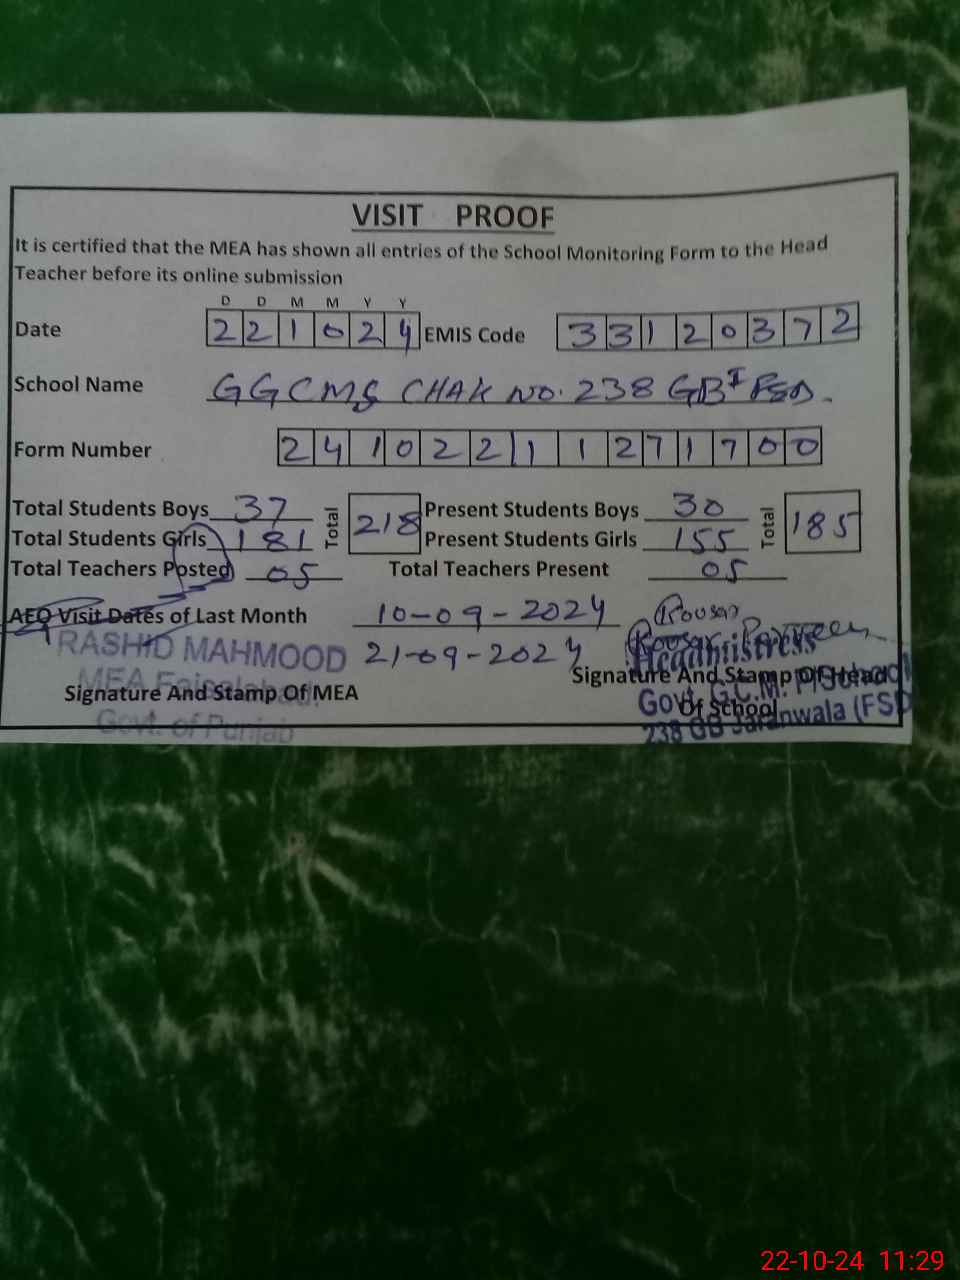 VISIT PROOF
It is certified that the MEA has shown all entries of the School Monitoring Form to the Head
Teacher before its online submission
D D M M Y Y
Date 2 2 1 0 2 4 EMIS Code 3 3 1 2 0 3 7 2
School Name GGCMS CHAK NO. 238 GB I FSD.
Form Number 2 4 1 0 2 2 1 1 2 7 1 7 0 0
Total Students Boys 37 Total 218 Present Students Boys 30 Total 185
Total Students Girls 181 Present Students Girls 155
Total Teachers Posted 05 Total Teachers Present 05
AEO Visit Dates of Last Month 10-09-2024 Koosar
RASHID MAHMOOD 21-09-2024 Koosar Parveen
Headmistress
MEA Faisalabad.
Signature And Stamp Of MEA Signature And Stamp Of Head
Of School
Govt. G.C.M. School
Govt. of Punjab 238 GB Jaranwala (FSD
22-10-24 11:29